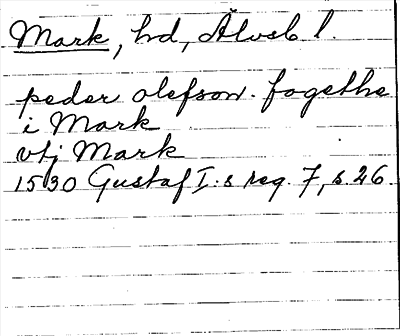 Mark, hd, Älvsb l.
peder olefson. fogethe
i Mark
vtj Mark
1530 Gustaf I:s reg. 7, s. 26.